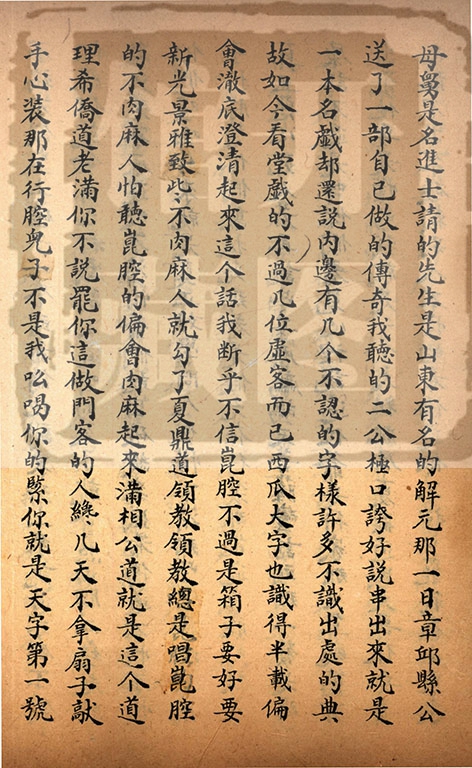 母舅是名進士請的先生是山東有名的解元那一日章邱縣公
送了一部自己做的傳奇我聽的二公極口誇好説串出來就是
一本名戯却還說内邊有几个不認的字樣許多不識出處的典
故如今看堂戯的不過几位虛客而已西瓜大字也識得半載偏
會澈底澄清起來這个話我断乎不信崑腔不過是箱子要好要
新光景雅致些不肉麻人就勾了夏鼎道領教領教總是唱崑腔
的不肉麻人怕聽崑腔的偏會肉麻起來滿相公道就是這个道
理希僑道老滿你不說罷你這做門客的人纔几天不拿扇子敲
手心装那在行腔兒子不是我吆喝你的緊你就是天字第一號